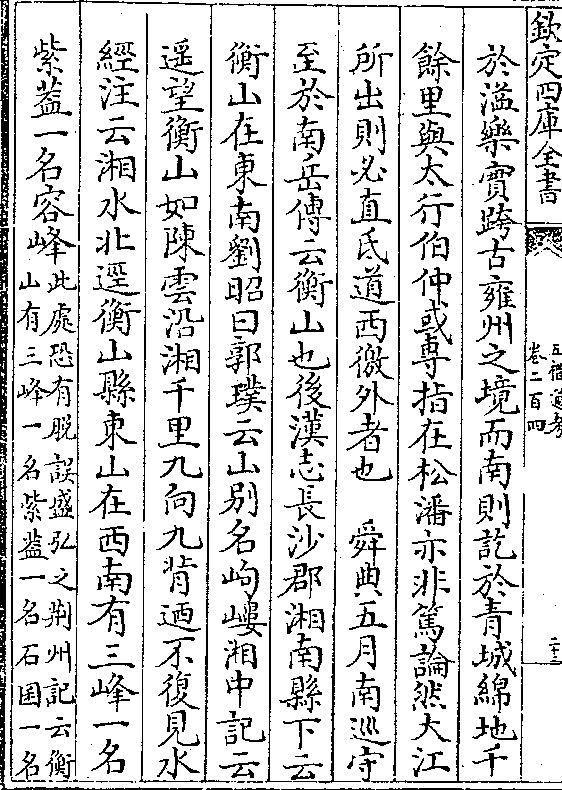 欽定四庫全書
五禮通考
卷二百四
二十三
於湓樂實跨古雍州之境而南則訖於青城綿地千
餘里與太行伯仲或專指在松潘亦非篤論然大江
所出則必直氐道西徼外者也　舜典五月南巡守
至於南岳傳云衡山也後漢志長沙郡湘南縣下云
衡山在東南劉昭曰郭璞云山别名岣嶁湘中記云
遥望衡山如陳雲沿湘千里九向九背迺不復見水
經注云湘水北逕衡山縣東山在西南有三峰一名
紫葢一名容峰此處恐有脱誤盛弘之荆州記云衡
山有三峰一名紫葢一名石囷一名